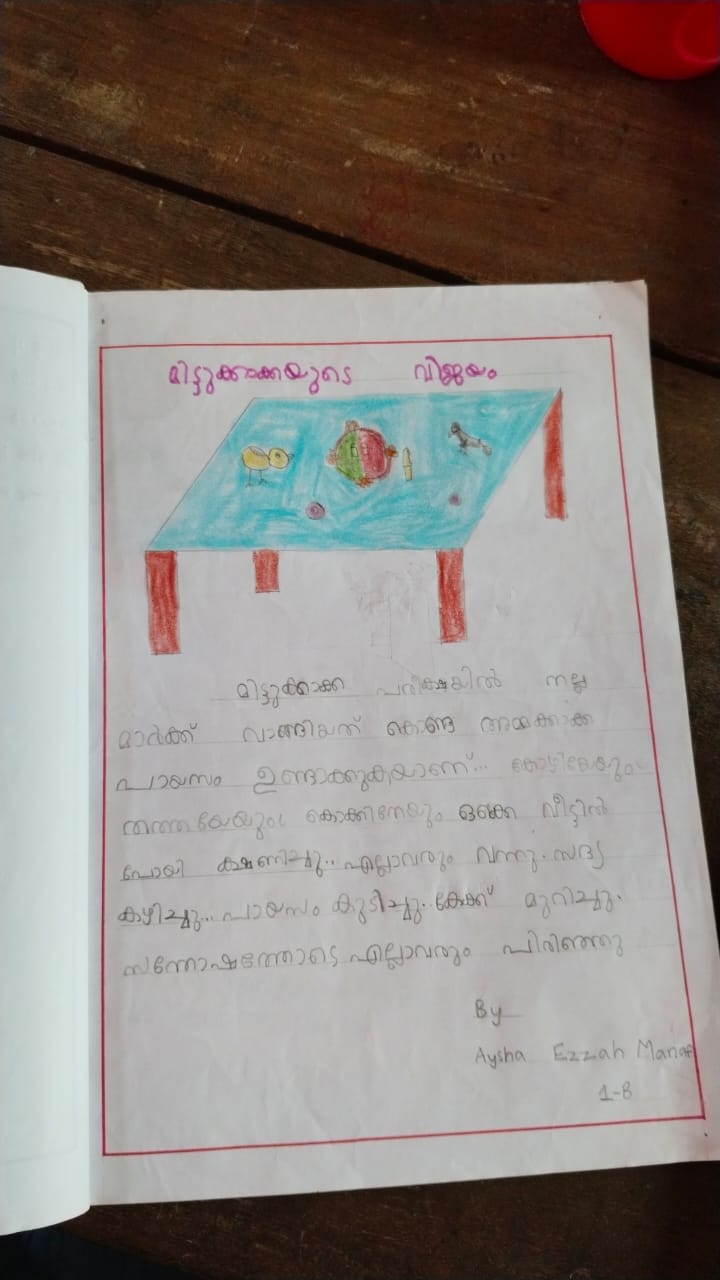 മിട്ടുക്കാക്കയുടെ വിജയം
മിട്ടുക്കാക്ക പരീക്ഷയിൽ നല്ല
മാർക്ക് വാങ്ങിയത് കൊണ്ട് അമ്മക്കാക്ക
പായസം ഉണ്ടാക്കുകയാണ്... കോഴിയേയും
തത്തയേയും കൊക്കിനേയും ഒക്കെ വീട്ടിൽ
പോയി ക്ഷണിച്ചു.. എല്ലാവരും വന്നു. സദ്യ
കഴിച്ചു... പായസം കുടിച്ചു.. കേക്ക് മുറിച്ചു.
സന്തോഷത്തോടെ എല്ലാവരും പിരിഞ്ഞു
By
Aysha Ezzah Manaf
1-8